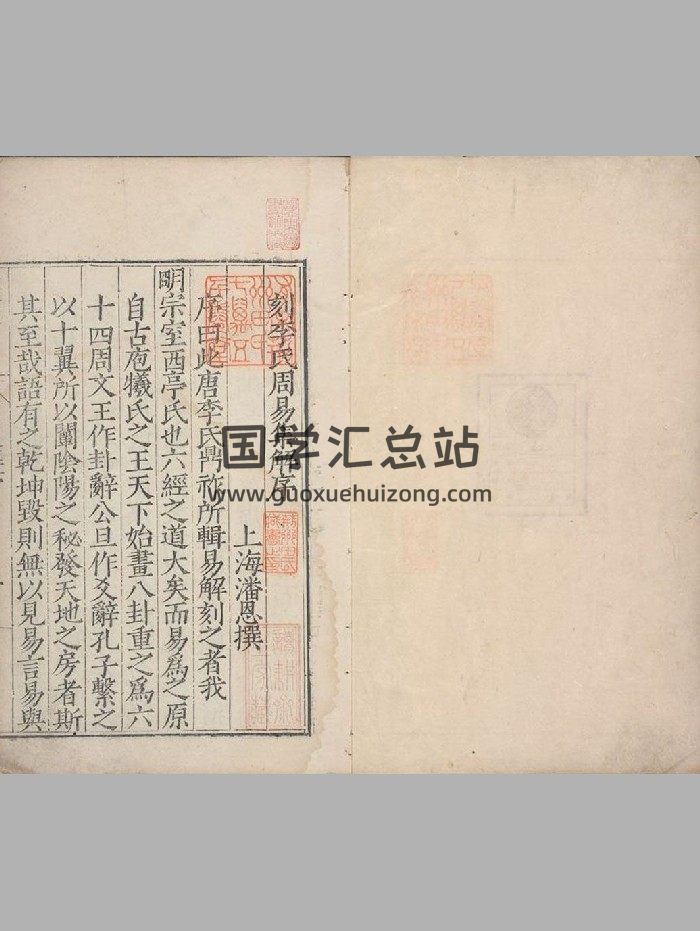 刻李氏周易集解序
上海潘恩撰
序曰此唐李氏鼎祚所輯易解刻之者我
明宗室西亭氏也六經之道大矣而易爲之原
自古庖犧氏之王天下始畫八卦重之爲六
十四周文王作卦辭公旦作爻辭孔子繫之
以十翼所以闡陰陽之秘發天地之房者斯
其至哉語有之乾坤毀則無以見易言易與
国学汇总站
www.guoxuehuizong.com